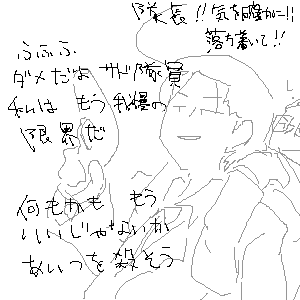 隊長!!気を確かに!!
落ち着いて!!
ふふふ
ダメだよ サド隊員
私は もう 我慢の
限界だ
何もかも もう
いいじゃないか
あいつを 殺そう